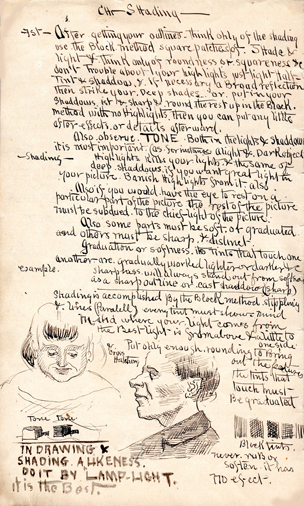 On Shading
1st - After getting your outlines. think only of the shading
use the Block method square patches of Shade &
light & think only of roundness or squareness &
don't trouble about your highlights just yet half-
tint & shadows, & if necessary a broad reflection
then strike your deep shades. or. Draw your
shaddows, 1st & sharp & round the rest up in the Block
method with no Highlights, then you can put any little
after-effect or details afterward.
Also observe TONE. Both in the lights & shaddows
it is most important
Shading - Highlights kills your lights & the same of
deep shaddows is you want great light in
your picture Banish Highlights from it also.
Also if you would have the eye to rest on a
particular part of the picture the rest of the picture
must be subdued to the chief light of the picture.
Also some parts must be soft or graduated
and others must be sharp, & distinct.
Graduation or softness, its tints that touch one
another are gradually worked lighter or darker &
example. sharpness will always stand out from softness
as a sharp outline or cast shaddow (sharp)
Shading is accomplished by the Block method, stippling
& lines (Paralell) every tint must show round
Mind where your light comes from
the Best light is from above & a little to
one side
& Cross Hatching
Put only enough rounding to bring
out the
the tints that
touch must
Be graduated
Tone Tone.
IN DRAWING &
SHADING. A LIKENESS.
DO IT BY LAMP-LIGHT.
it is the Best.
Block tints.
never rub or
soften it has
no effect.